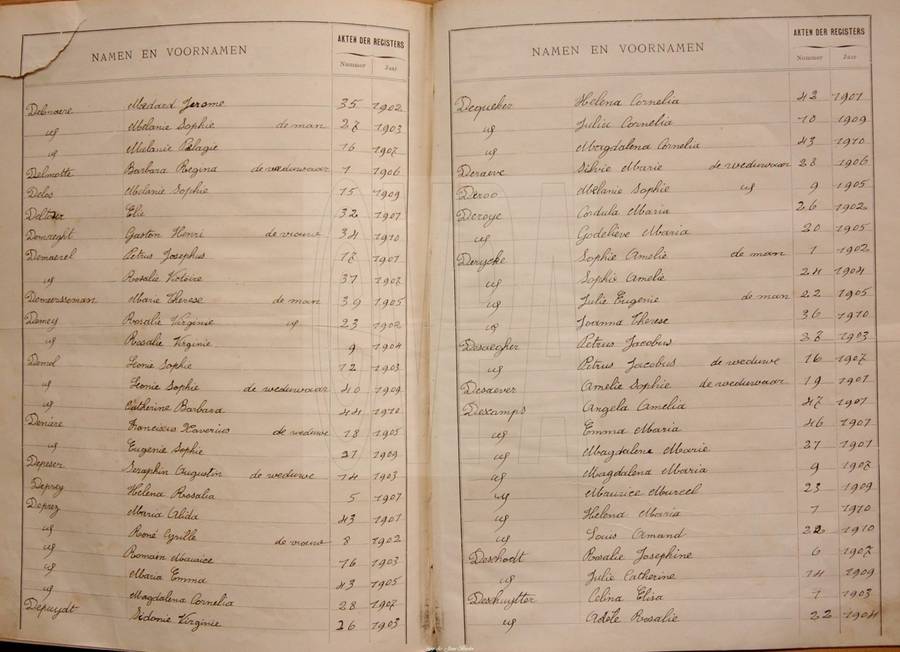 NAMEN EN VOORNAMEN AKTEN DER REGISTERS
Nummer Jaar
Delmaere Medard Jerome 35 1902
id Melanie Sophie de man 27 1903
id Melanie Pelagie 16 1907
Delmotte Barbara Regina de weduwaar 1 1906
Deloo Melanie Sophie 15 1909
Elie 32 1901
Demaeght Gaston Henri de vrouw 34 1910
Demaerel Petrus Josephus 17 1901
id Rosalie Victoire 37 1907
Demeersseman Marie Therese de man 39 1905
Demey Rosalie Virginie id 23 1902
id Rosalie Virginie 9 1904
Demol Leonie Sophie 12 1903
id Leonie Sophie de weduwaar 40 1909
id Catherine Barbara 44 1910
Deniere Franciscus Xaverius de weduwe 18 1905
id Eugenie Sophie 27 1909
Depeser Seraphin Augustin de weduwe 14 1903
Deprey Helena Rosalia 5 1907
Deprez Maria Alida 43 1901
id René Cyrille de vrouw 8 1902
id Romain Maurice 16 1903
id Maria Emma 43 1905
id Magdalena Cornelia 28 1907
Depuydt Sidonie Virginie 26 1903
NAMEN EN VOORNAMEN AKTEN DER REGISTERS
Nummer Jaar
Dequeker Helena Cornelia 42 1901
id Julia Cornelia 10 1909
id Magdalena Cornelia 43 1910
Deraeve Silvie Marie de weduwaar 28 1906
Deroo Melanie Sophie id 9 1905
Deroye Cordula Maria 26 1902
id Godelieve Maria 30 1905
Derycke Sophie Amelie de man 1 1902
id Sophie Amelie 24 1904
id Julie Eugenie de man 22 1905
id Joanna Therese 36 1910
Desaegher Petrus Jacobus 37 1903
id Petrus Jacobus de weduwe 16 1907
Desaever Amelie Sophie de weduwaar 19 1901
Descamps Angela Amelia 47 1901
id Emma Maria 46 1901
id Magdalena Marie 27 1901
id Magdalena Maria 9 1902
id Maurice Marcel 23 1909
id Helena Maria 7 1910
id Louis Amand 22 1910
Deschodt Rosalie Josephine 6 1907
id Julie Catherine 14 1909
Deschuytter Celina Elisa 1 1903
id Adèle Rosalie 22 1904